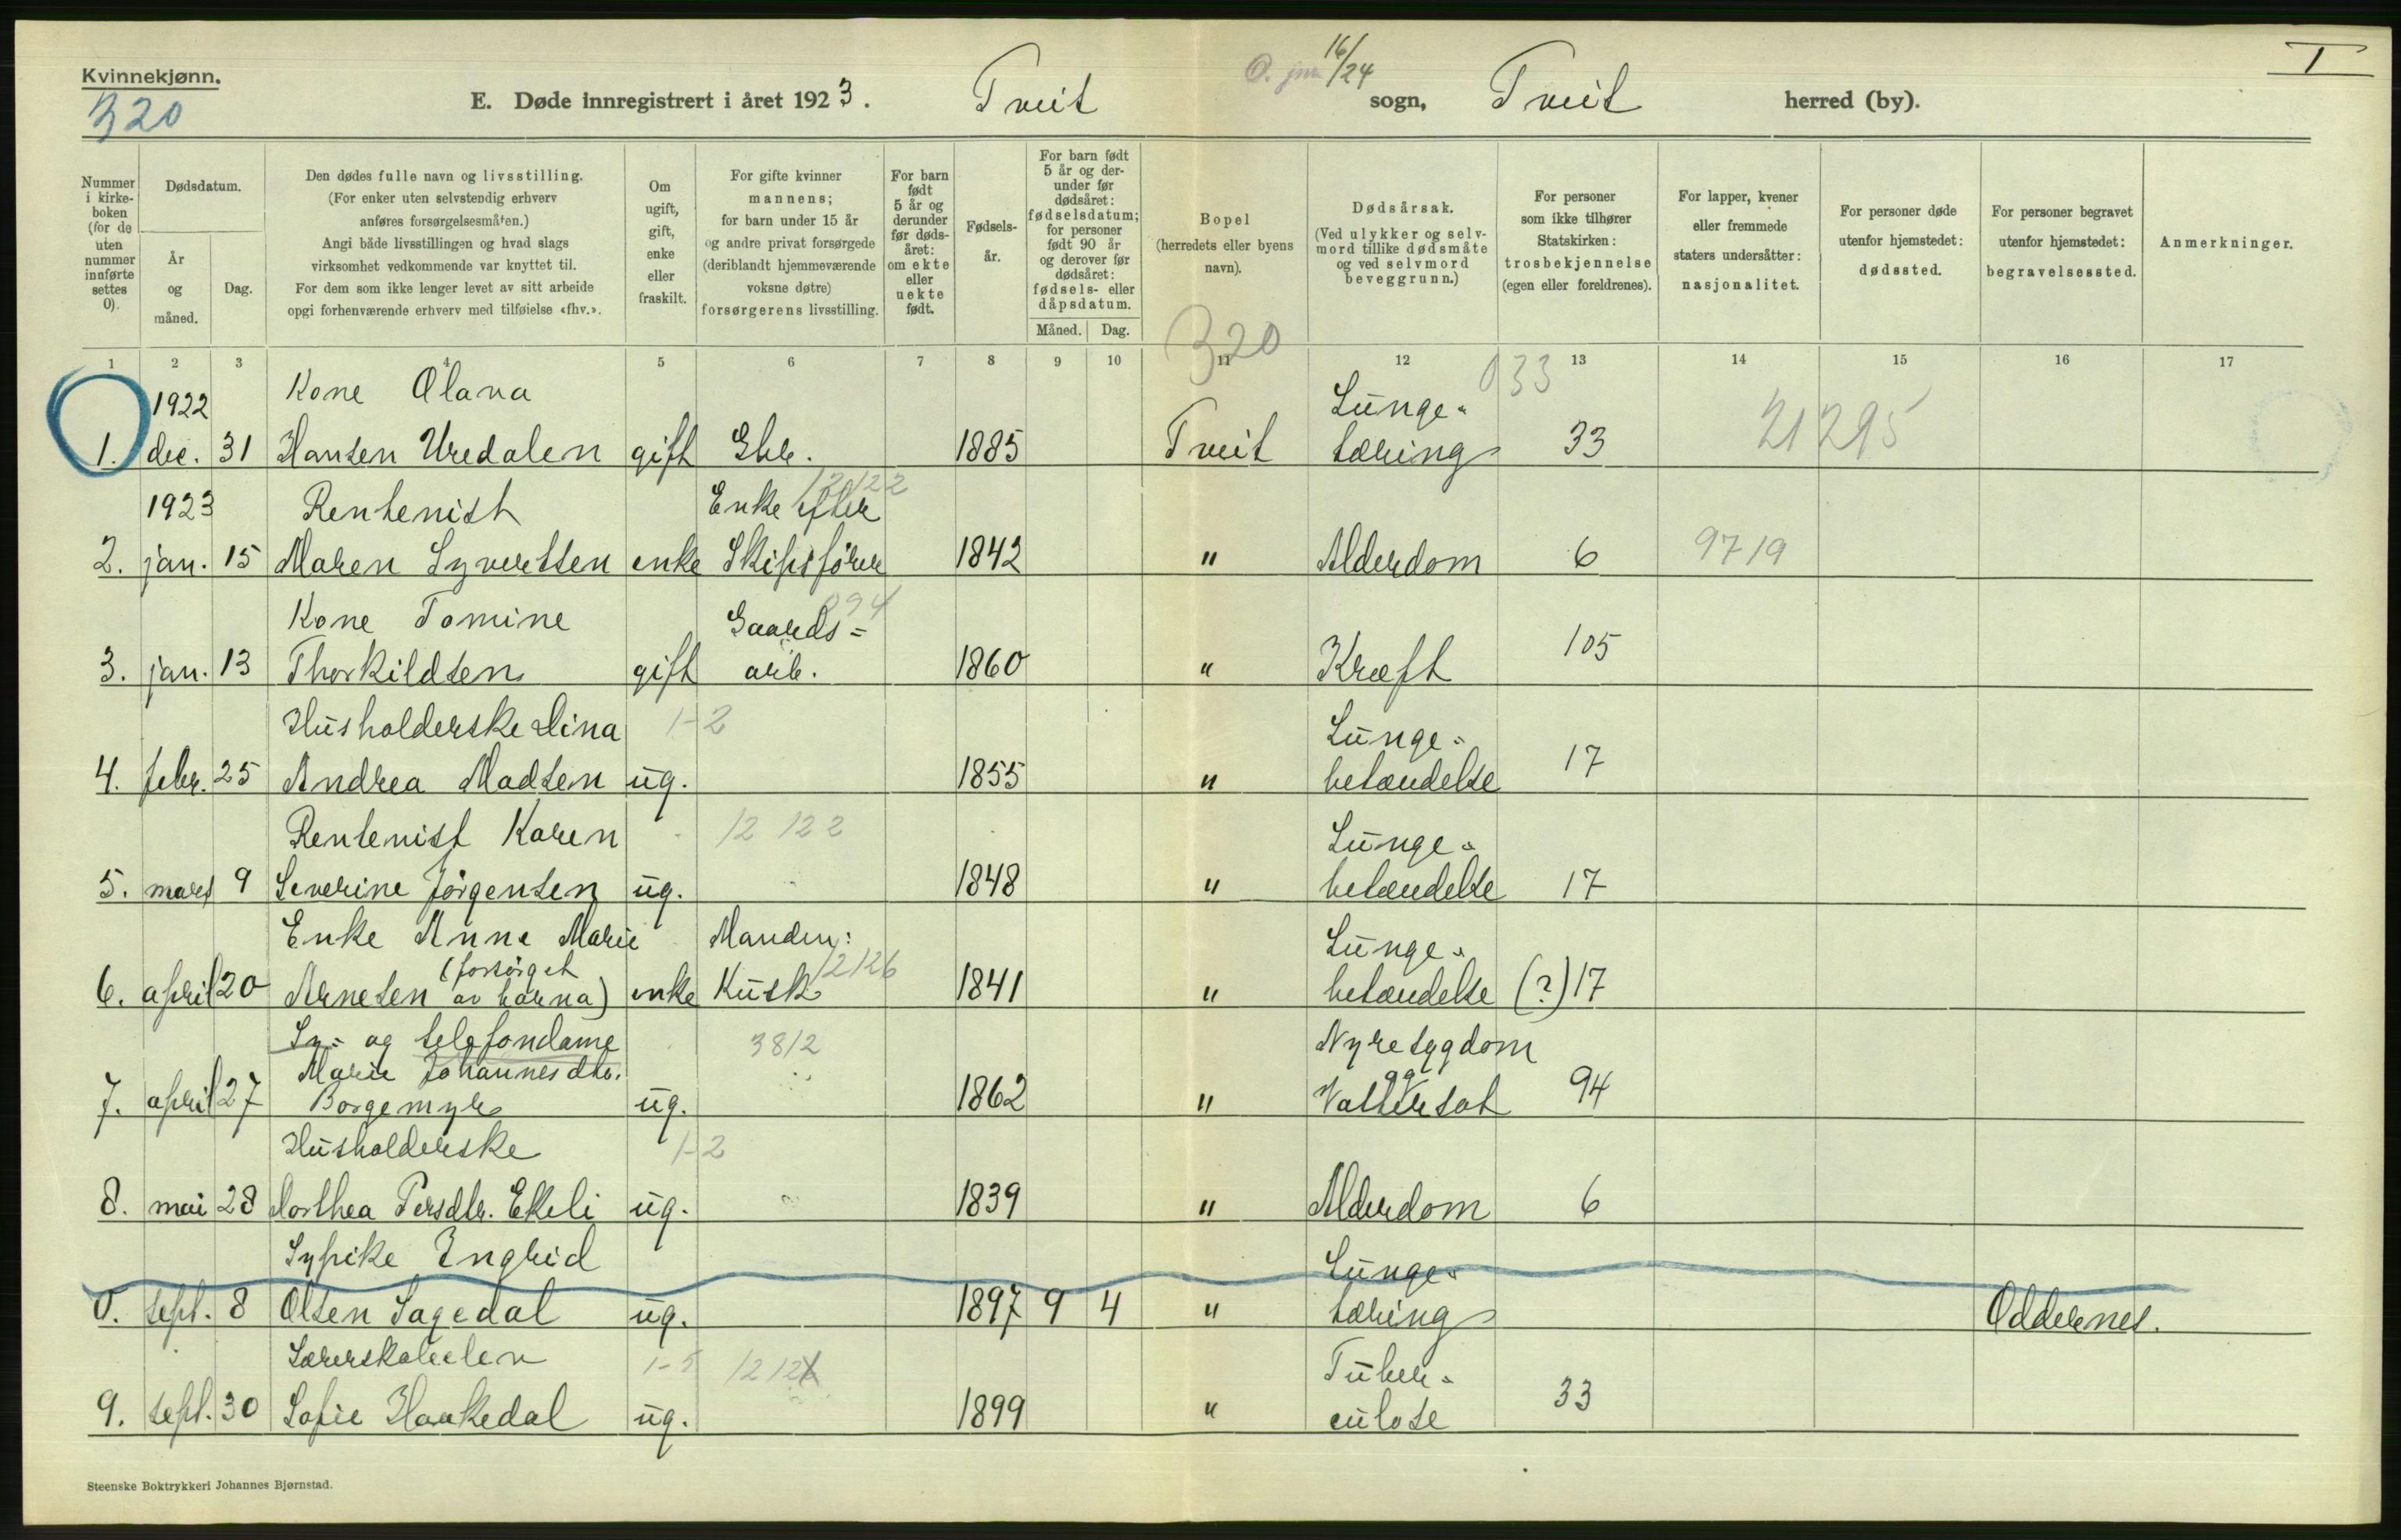 Kvinnekjønn.
320
E. Døde innregistrert i året 1923.
Tveit
16/24
sogn,
Tveit
herred (by).
I
Nummer i kirke-boken (for de uten nummer innførte settes 0).
Dødsdatum.
År og måned.
Dag.
Den dødes fulle navn og livsstilling.
(For enker uten selvstendig erhverv
anføres forsørgelsesmåten.)
Angi både livsstillingen og hvad slags
virksomhet vedkommende var knyttet til.
For dem som ikke lenger levet av sitt arbeide
opgi forhenværende erhverv med tilføielse «fhv.».
Om ugift, gift, enke eller fraskilt.
For gifte kvinner
mannens;
for barn under 15 år
og andre privat forsørgede
(deriblandt hjemmeværende
voksne døtre)
forsørgerens livsstilling.
For barn født 5 år og derunder før døds-året: om ekte eller uekte født.
Fødsels-år.
For barn født 5 år og der-under før dødsåret: fødselsdatum; for personer født 90 år og derover før dødsåret: fødsels- eller dåpsdatum.
Måned. Dag.
Bopel
(herredets eller byens
navn).
320
Dødsårsak.
(Ved ulykker og selv-
mord tillike dødsmåte
og ved selvmord
beveggrunn.)
For personer
som ikke tilhører
Statskirken:
trosbekjennelse
(egen eller foreldrenes).
For lapper, kvener
eller fremmede
staters undersåtter:
nasjonalitet.
For personer døde
utenfor hjemstedet:
dødssted.
For personer begravet
utenfor hjemstedet:
begravelsessted.
Anmerkninger.
1 2 3 4 5 6 7 8 9 10 11 12 13 14 15 16 17
1922 Kone Olava Lunge- 033
1. dec. 31 Hansen Uredalen gift 1885 Tveit tæring 33 21295
1923 Rentenist Enke efter 12122
2. jan. 15 Maren Syvertsen enke Skipsfører 1842 " Alderdom 6 9719
Kone Tomine Gaards= 094
3. jan. 13 Thorkildsen gift arb. 1860 " Kræft 105
Husholderske Dina 1-2 Lunge-
4. febr. 25 Andrea Madsen ug. 1855 " betændelse 17
Rentenist Karen 12 122 Lunge-
5. mars 9 Severine Jørgensen ug. 1848 " betændelse 17
Enke Anne Marie Manden: Lunge-
6. april 20 Arnesen (forsørget av barna) enke Kusk 12126 1841 " betændelse (?) 17
Sy- og telefondame 3812 Nyresygdom
Marie Johannesdtr. og
7. april 27 Borgemyr ug. 1862 " Vattersot 94
Husholderske 1-2
8. mai 28 Dorthea Persdtr. Ekeli ug. 1839 " Alderdom 6
Sypike Ingrid Lunge-
0. sept. 8 Olsen Sagedal ug. 1897 9 4 " tæring Oddernes.
Lærerskoleelev 1-5 Tuber-
9. sept. 30 Sofie Haukedal ug. 1899 " culose 33
Steenske Boktrykkeri Johannes Bjørnstad.